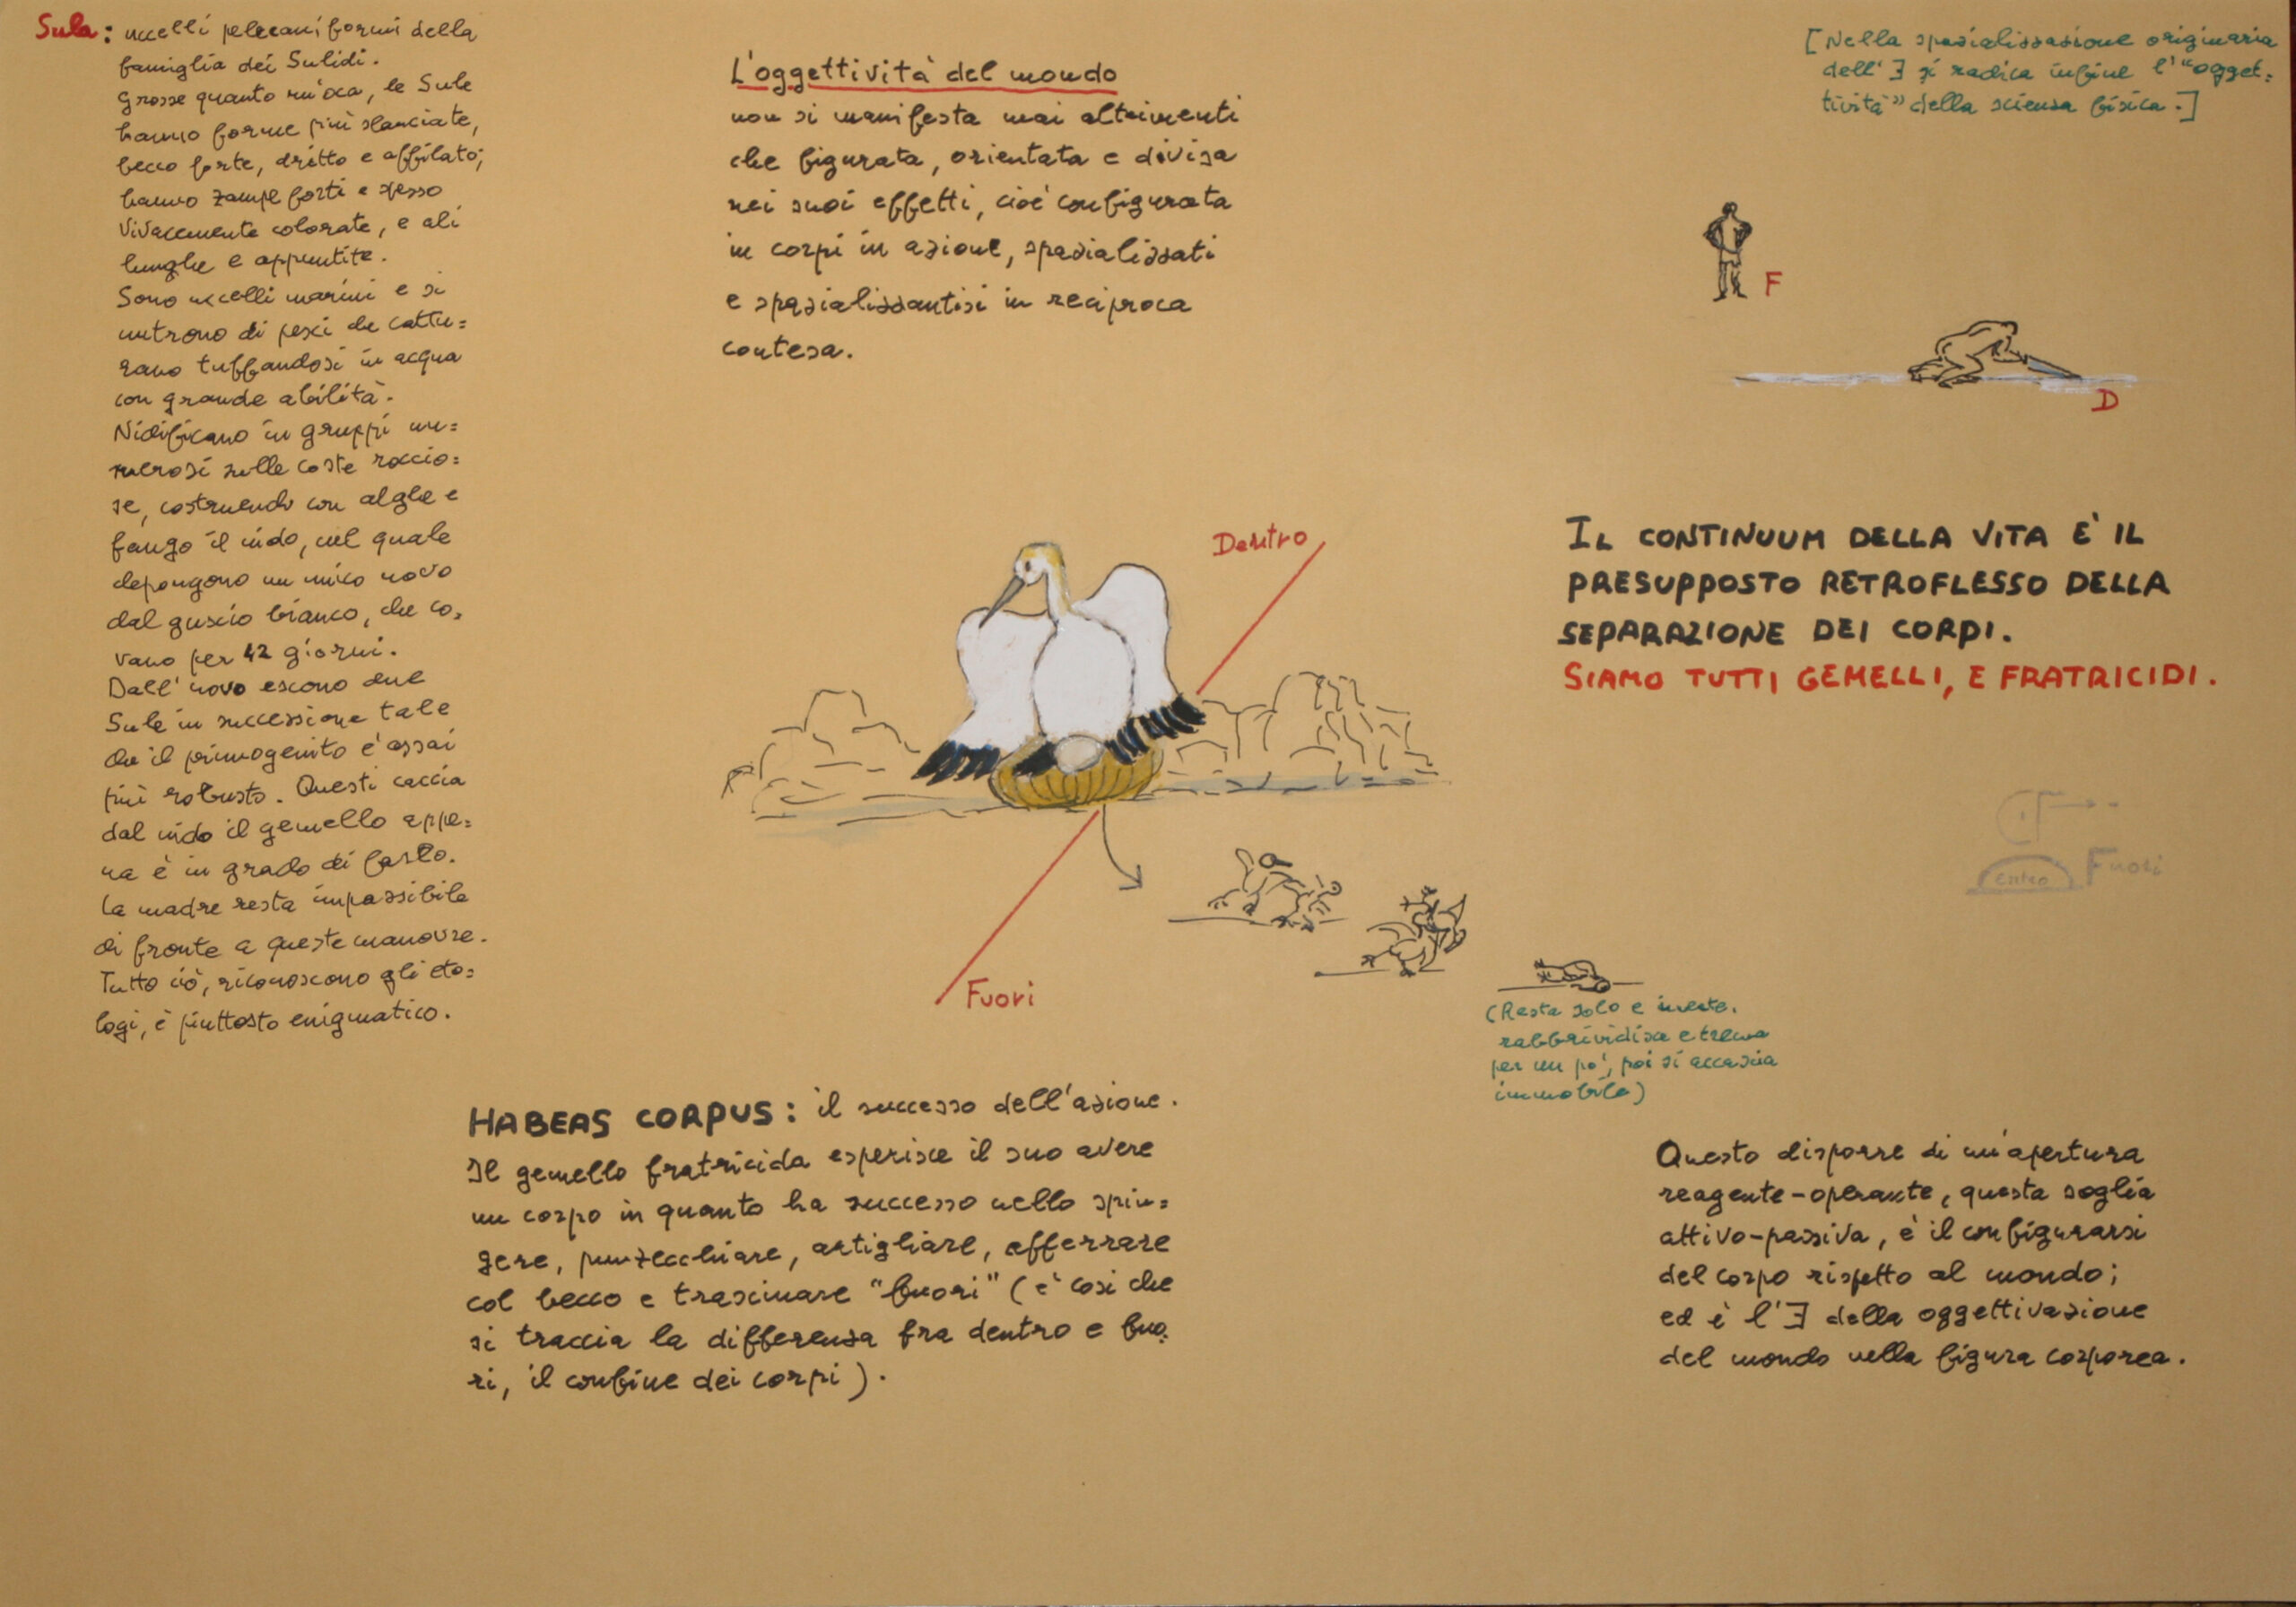 Sula: uccelli pelecaniformi della
famiglia dei Sulidi.
Grosse quanto un'oca, le Sule
hanno forme più slanciate,
becco forte, dritto e affilato;
hanno zampe forti e spesso
vivacemente colorate, e ali
lunghe e appuntite.
Sono uccelli marini e si
nutrono di pesci che cattu=
rano tuffandosi in acqua
con grande abilità.
Nidificano in gruppi nu=
merosi sulle coste roccio=
se, costruendo con alghe e
fango il nido, nel quale
depongono un unico uovo
dal guscio bianco, che co=
vano per 42 giorni.
Dall'uovo escono due
Sule in successione tale
che il primogenito è assai
più robusto. Questi caccia
dal nido il gemello appe=
na è in grado di farlo.
La madre resta impassibile
di fronte a queste manovre.
Tutto ciò, riconoscono gli eto=
logi, è piuttosto enigmatico.
L'oggettività del mondo
non si manifesta mai altrimenti
che figurata, orientata e divisa
nei suoi effetti, cioè configurata
in corpi in azione, spazializzati
e spazializzantisi in reciproca
contesa.
[Nella spazializzazione originaria
dell'∃ si radica infine l'"ogget=
tività" della scienza fisica.]
F
D
IL CONTINUUM DELLA VITA È IL
PRESUPPOSTO RETROFLESSO DELLA
SEPARAZIONE DEI CORPI.
SIAMO TUTTI GEMELLI, E FRATRICIDI.
Dentro
Fuori
Fuori
(Resta solo e inerte,
rabbrividisce e trema
per un po', poi si accascia
immobile)
HABEAS CORPUS: il successo dell'azione.
Il gemello fratricida esperisce il suo avere
un corpo in quanto ha successo nello spin=
gere, punzecchiare, artigliare, afferrare
col becco e trascinare "fuori" (è così che
si traccia la differenza fra dentro e fuo=
ri, il confine dei corpi).
Questo disporre di un'apertura
reagente-operante, questa soglia
attivo-passiva, è il configurarsi
del corpo rispetto al mondo;
ed è l'∃ della oggettivazione
del mondo nella figura corporea.